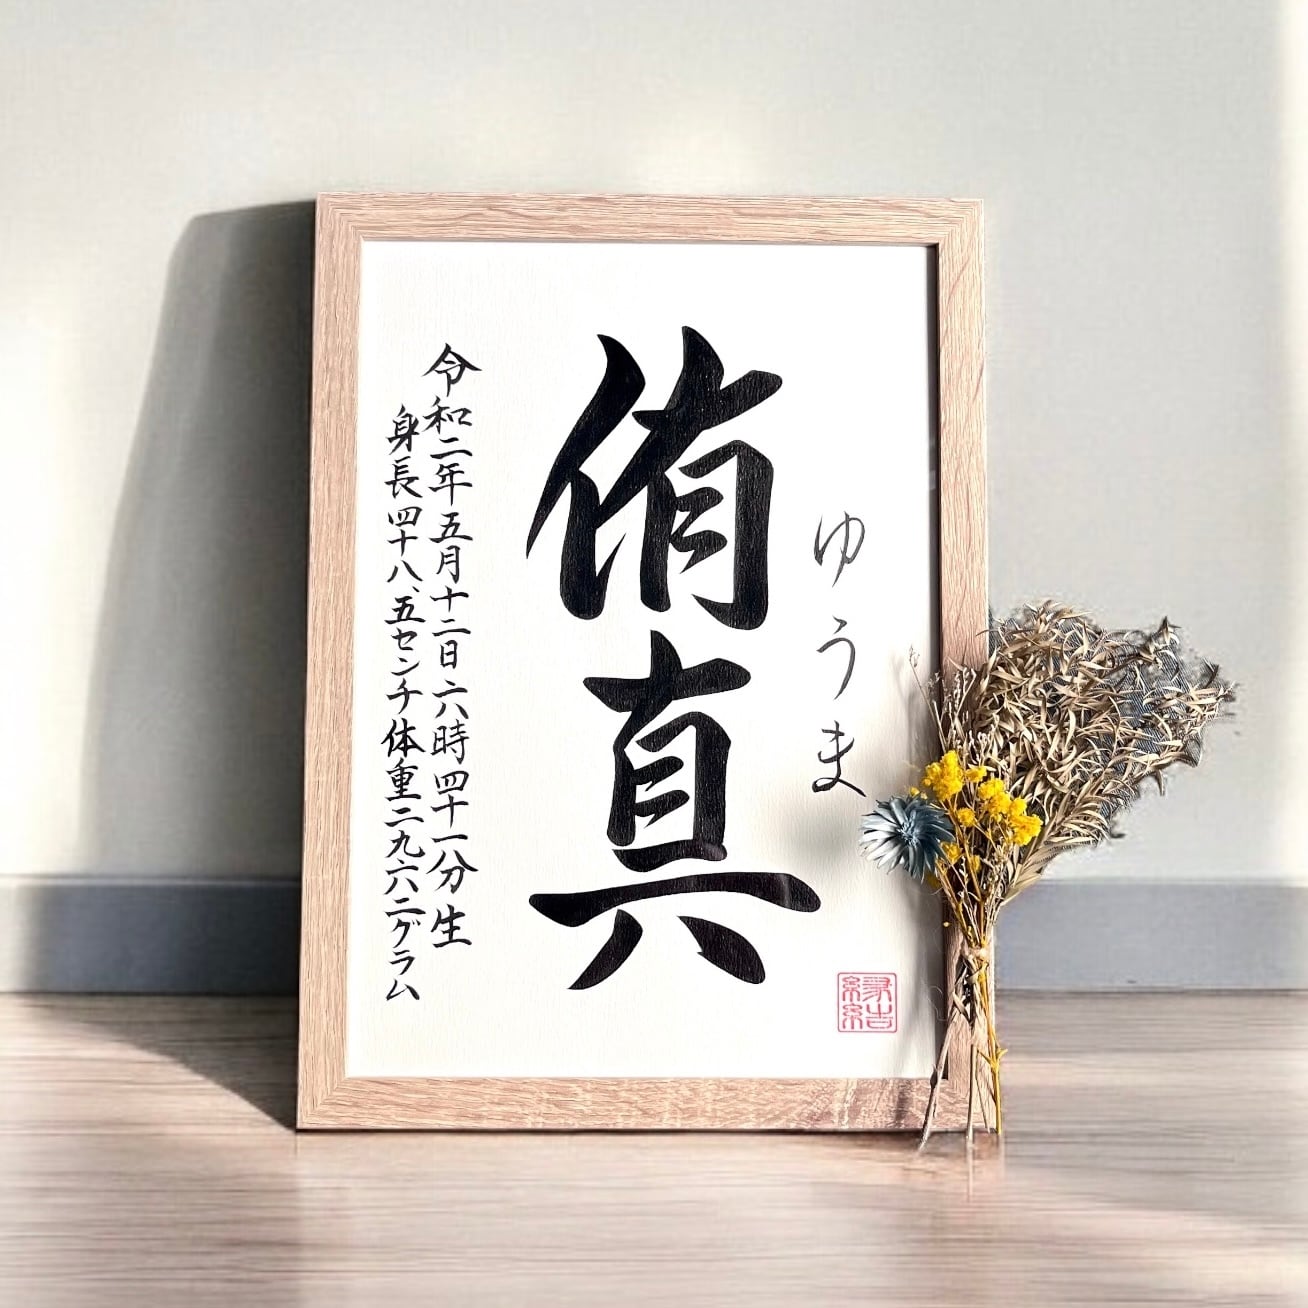 ゆうま
侑真
令和二年五月十二日六時四十一分生
身長四十八、五センチ体重二九六二グラム
縁結